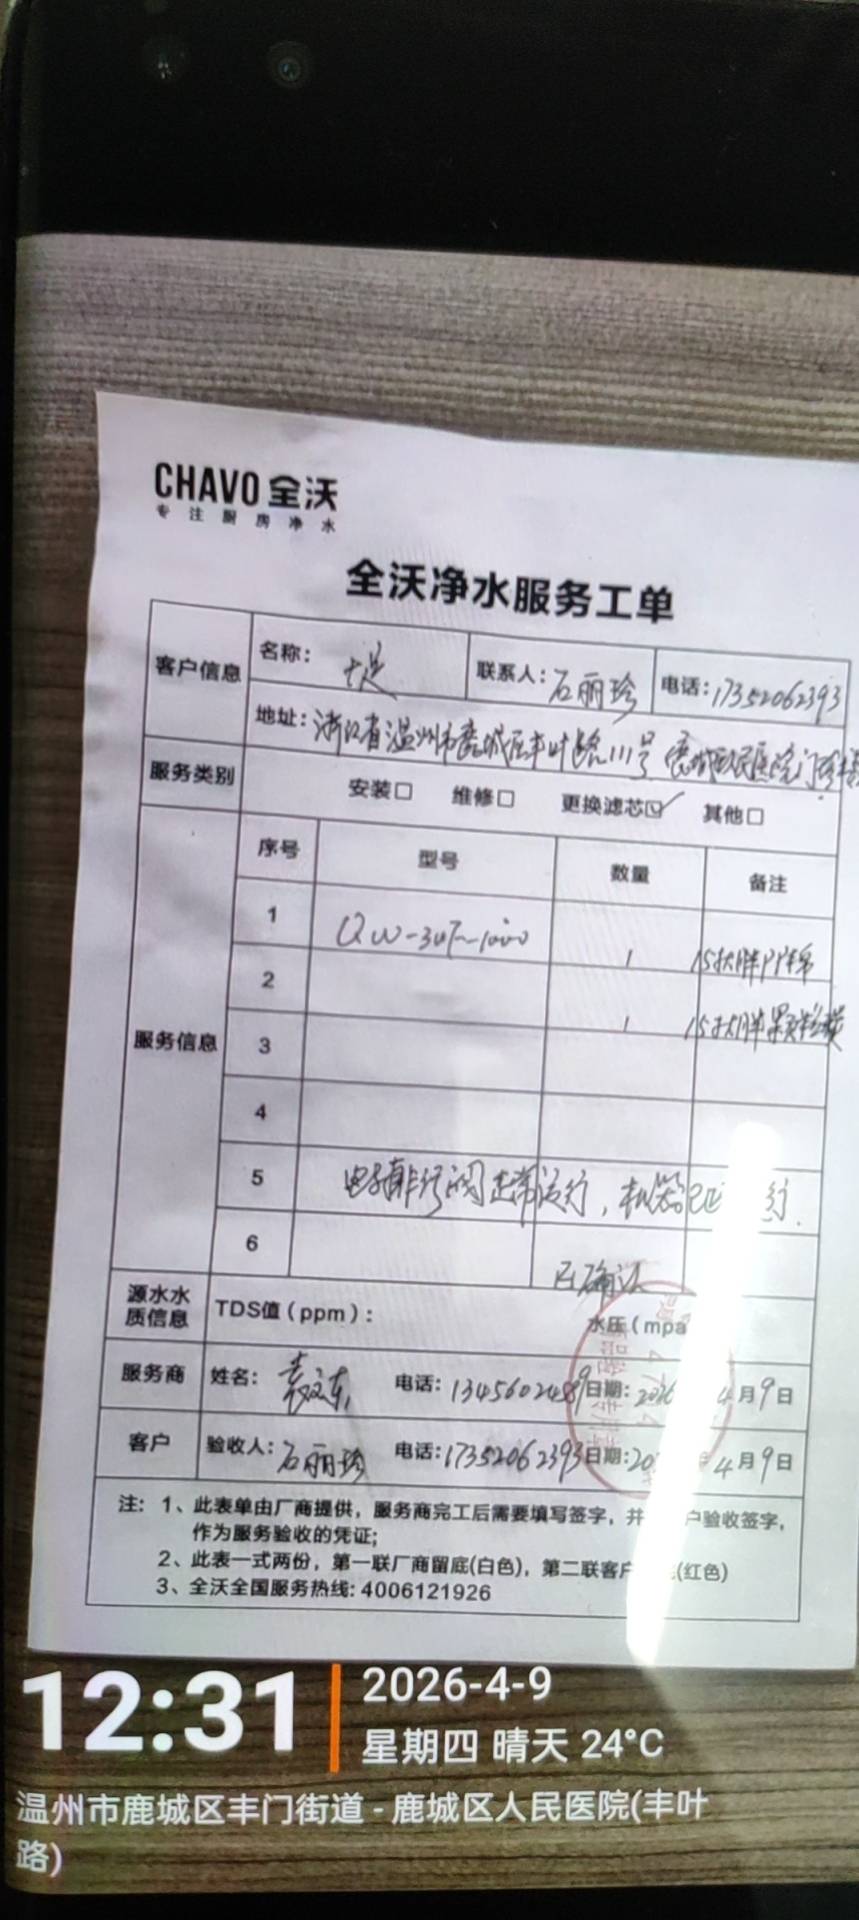 CHAVO 全沃
专注厨房净水
全沃净水服务工单
客户信息 名称： 联系人：石丽珍 电话：17352062393
地址：浙江省温州市鹿城区丰叶路111号 鹿城区人民医院门诊
服务类别 安装□ 维修□ 更换滤芯☑ 其他□
服务信息 序号 型号 数量 备注
1 1 15寸大胖PP棉
2 1 15寸大胖颗粒炭
3
4
5 正常运行，机器
6 已确认
源水水质信息 TDS值（ppm）： 水压（mpa
服务商 姓名： 电话：13456024899 日期：2026 4月9日
客户 验收人：石丽珍 电话：17352062393 日期：20 4月9日
注：1、此表单由厂商提供，服务商完工后需要填写签字，并 户验收签字，
作为服务验收的凭证；
2、此表一式两份，第一联厂商留底(白色)，第二联客户 (红色)
3、全沃全国服务热线：4006121926
12:31
2026-4-9
星期四 晴天 24°C
温州市鹿城区丰门街道 - 鹿城区人民医院(丰叶
路)